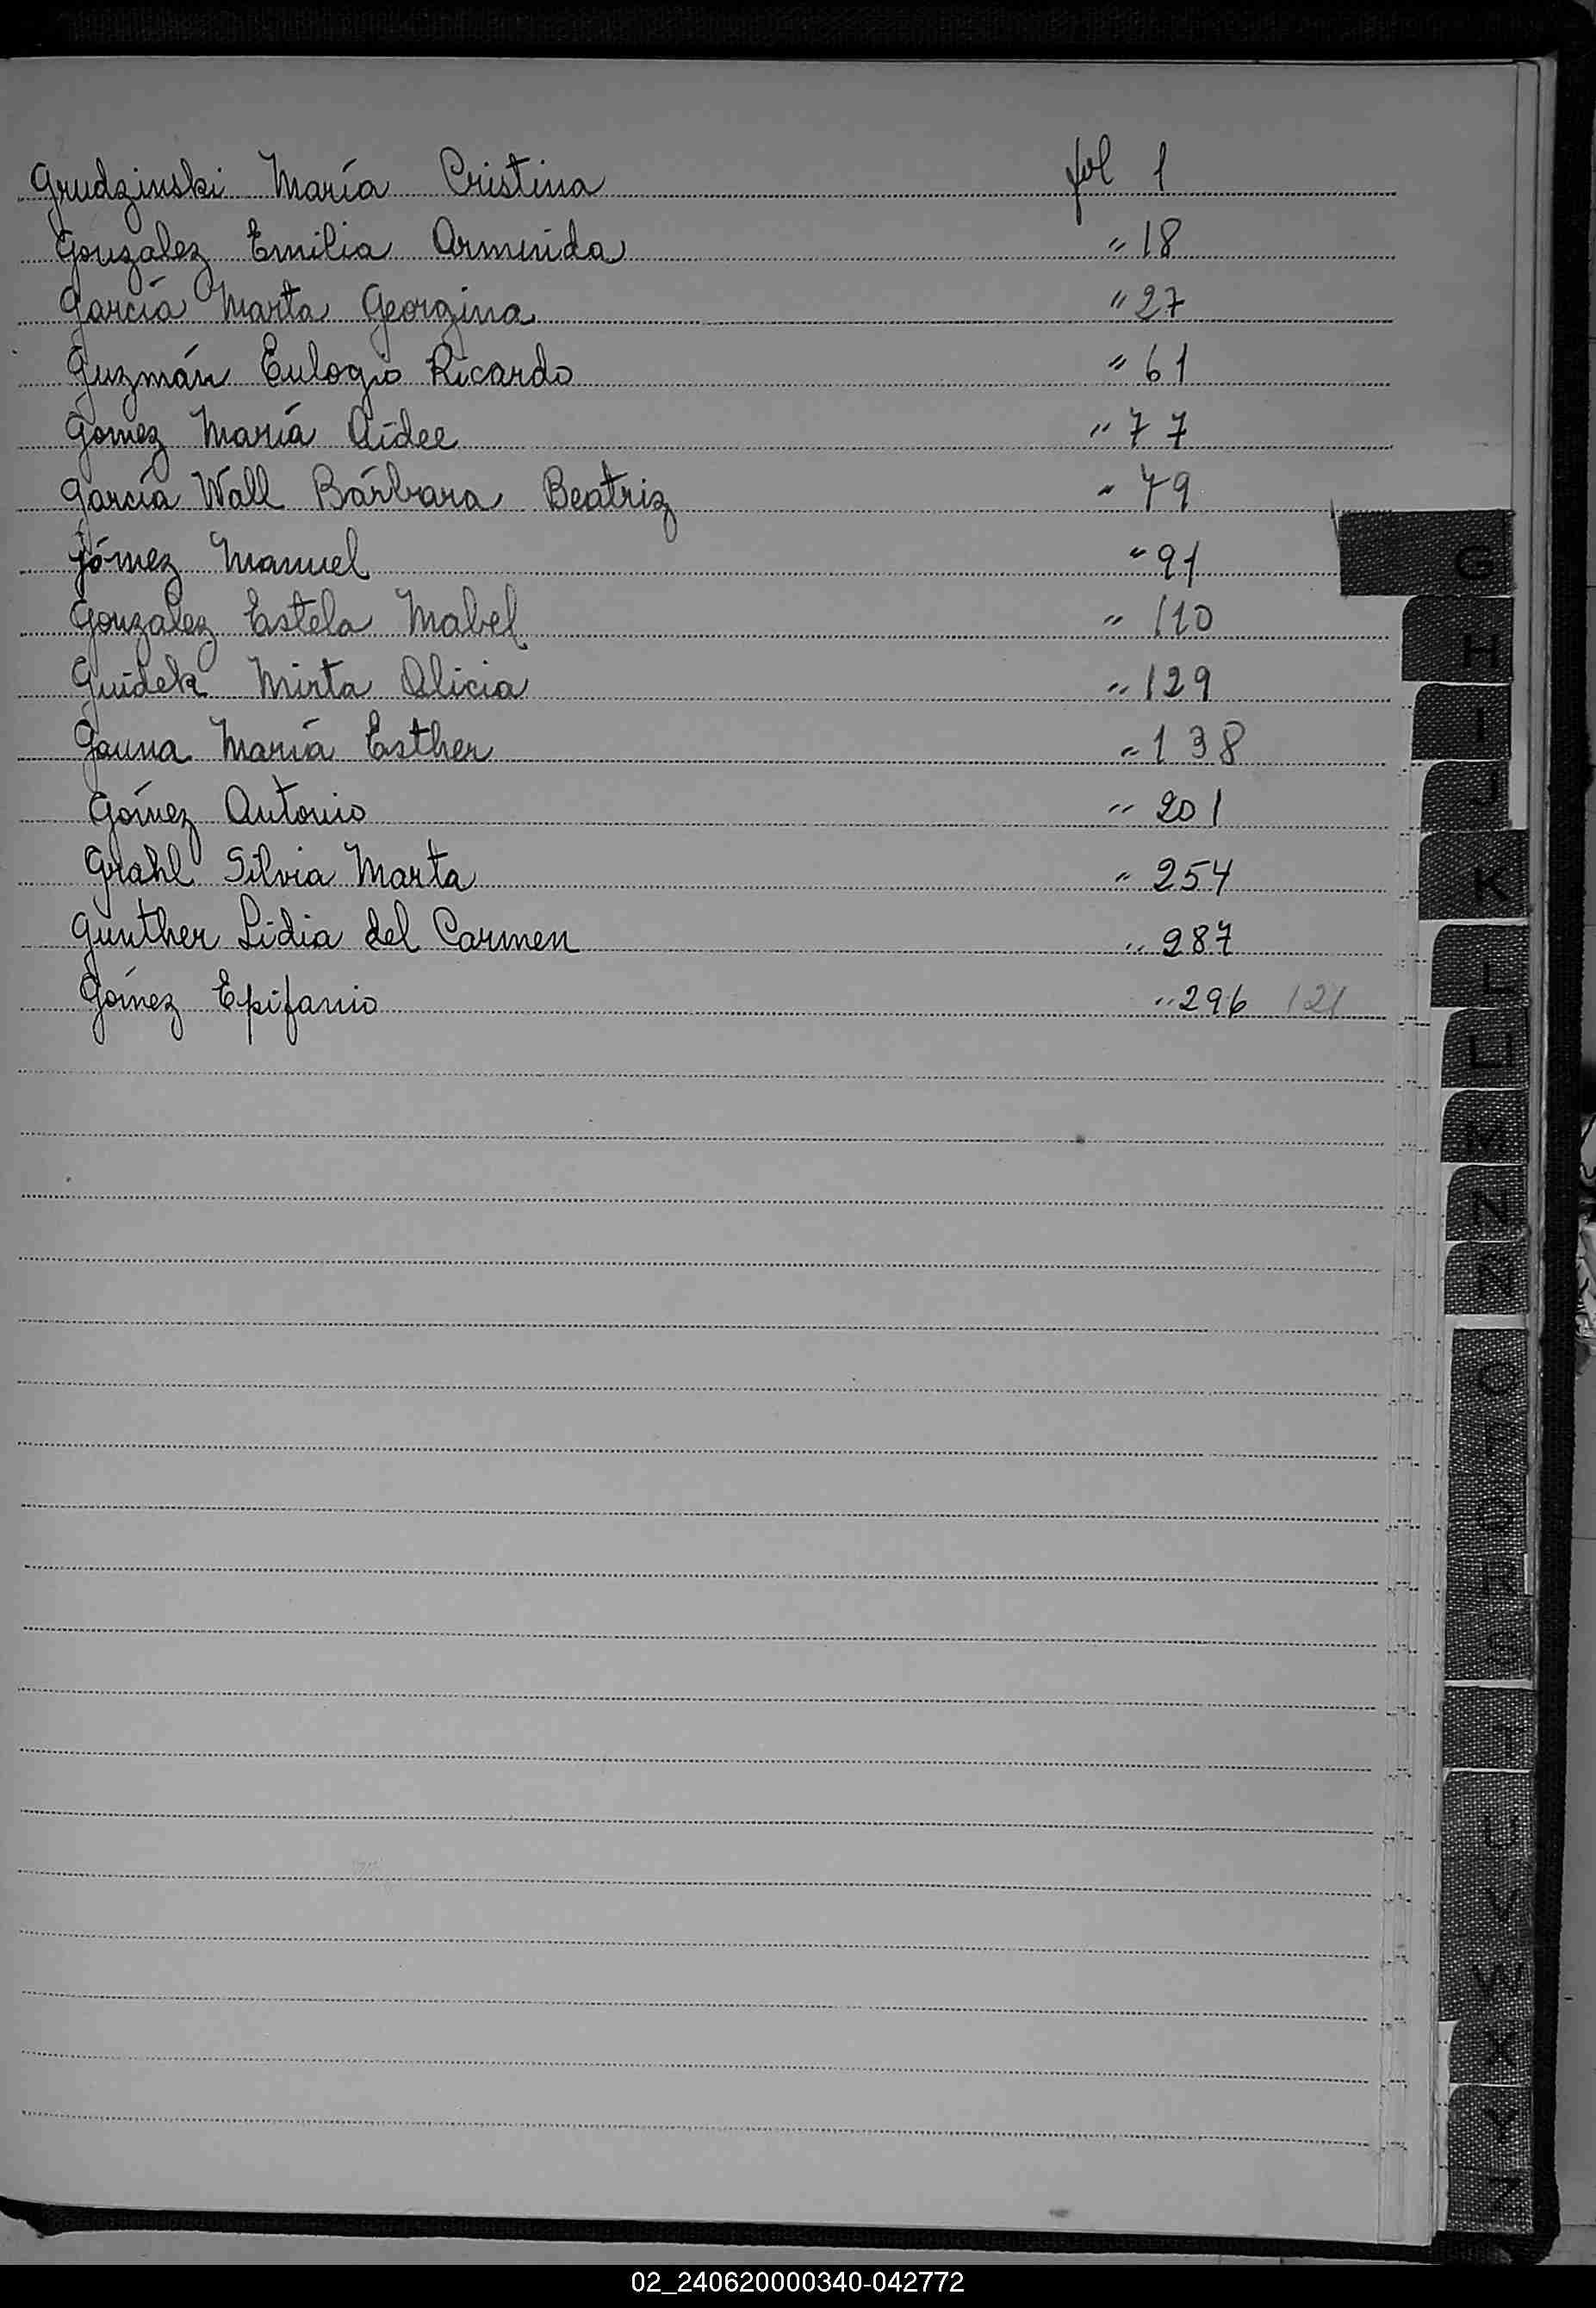 Grudzinski María Cristina fol 1
Gonzalez Emilia Armida " 18
García Marta Georgina " 27
Guzmán Eulogio Ricardo " 61
Gomez María Aídee " 77
García Wall Bárbara Beatriz " 79
Gómez Manuel " 91
Gonzalez Estela Mabel " 110
Guidek Mirta Alicia " 129
Gauna María Esther " 138
Gómez Antonio " 201
Grahl Silvia Marta " 254
Gunther Lidia del Carmen " 287
Gómez Epifanio " 296 121
G
H
I
J
K
L
LL
M
N
Ñ
O
P
Q
R
S
T
U
V
W
X
Y
Z
02_240620000340-042772